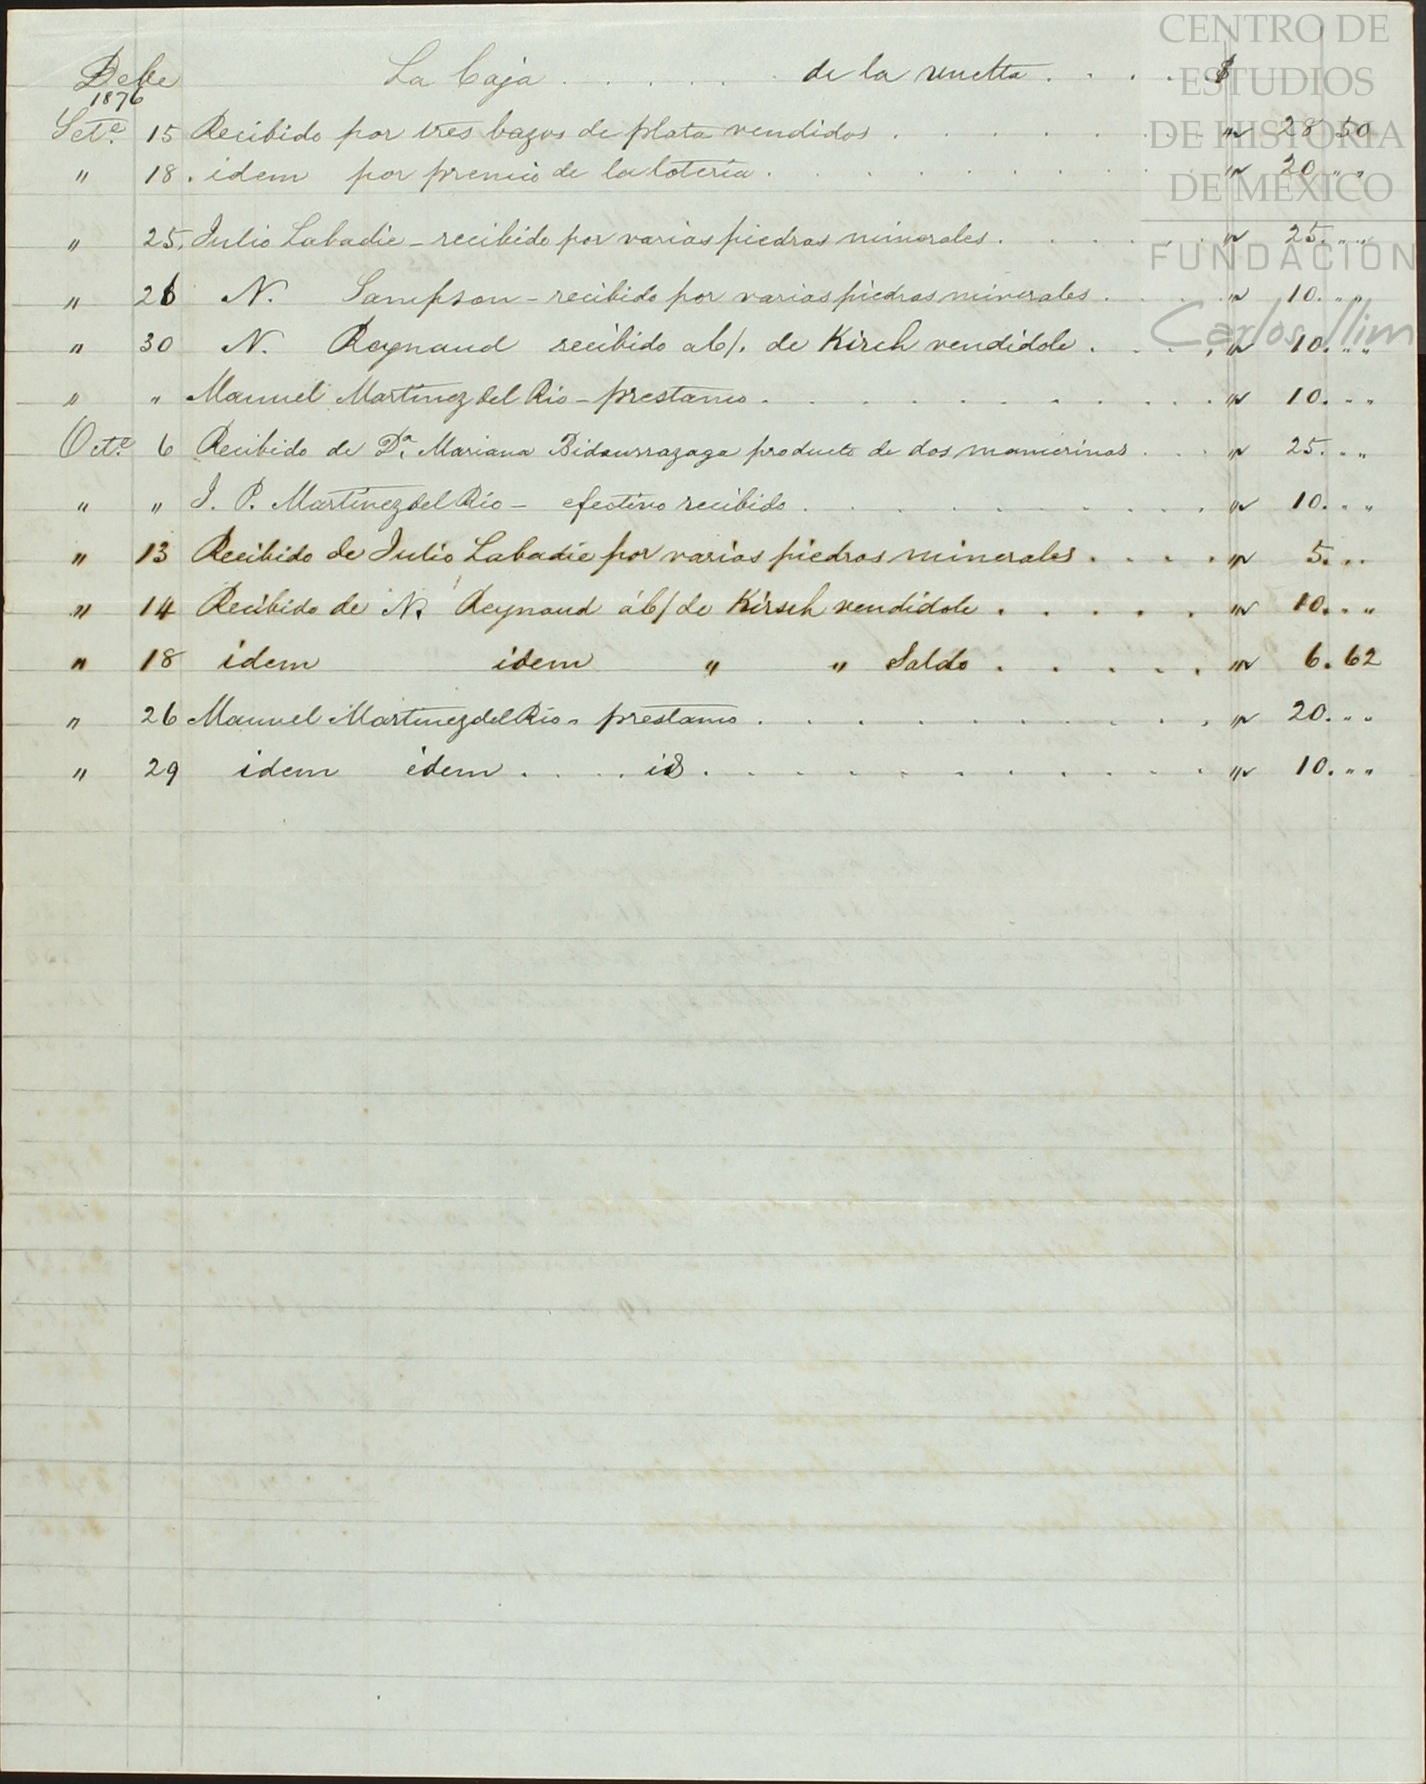 Debe La Caja . . . . . . de la vuelta . . . . $
1876
Sete. 15 Recibido por tres bazos de plata vendidos . . . . . . . . " 28 50
" 18. idem por premio de la lotería . . . . . . . . . . " 20 " "
" 25. Julio Labadie - recibido por varias piedras minerales . . . . . . " 25. " "
" 26 N. Sampson - recibido por varias piedras minerales . . . . " 10. " "
" 30 N. Reynaud recibido a b/. de Kirsch vendidole . . . . " 10. " "
" " Manuel Martinez del Rio - prestamo . . . . . . . . . . . " 10. " "
Octe. 6 Recibido de Da. Mariana Bidaurrazaga producto de dos mancerinas . . . " 25. " "
" " J. P. Martinez del Rio - efectivo recibido . . . . . . . . . . . " 10. " "
" 13 Recibido de Julio Labadie por varias piedras minerales . . . . " 5. " "
" 14 Recibido de N. Reynaud á b/ de Kirsch vendidole . . . . . " 10. " "
" 18 idem idem " " Saldo . . . . . " 6. 62
" 26 Manuel Martinez del Rio - prestamo . . . . . . . . . . . " 20. " "
" 29 idem idem . . . . id . . . . . . . . . . . . " 10. " "
CENTRO DE
ESTUDIOS
DE HISTORIA
DE MÉXICO
FUNDACIÓN
Carlos Slim